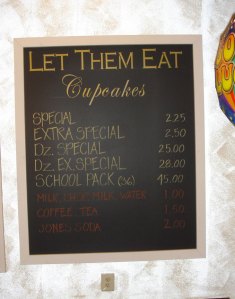 LET THEM EAT
Cupcakes
SPECIAL 2.25
EXTRA SPECIAL 2.50
DZ. SPECIAL 25.00
DZ. EX. SPECIAL 28.00
SCHOOL PACK (36) 45.00
MILK, CHOC MILK, WATER 1.00
COFFEE, TEA 1.50
JONES SODA 2.00